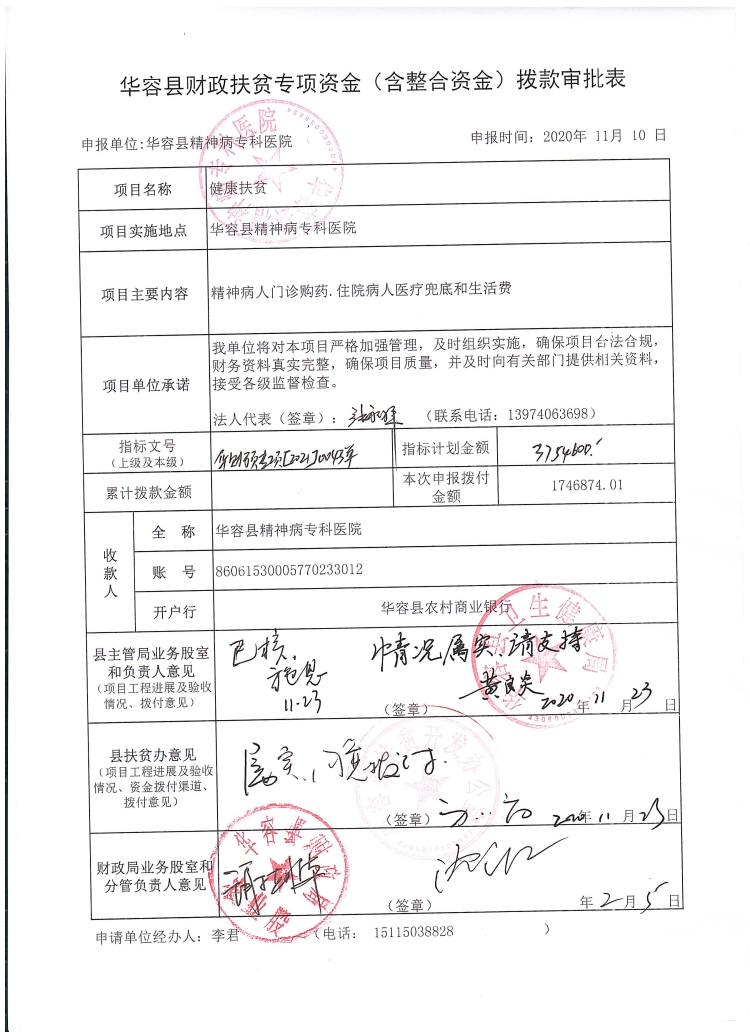 华容县财政扶贫专项资金（含整合资金）拨款审批表
申报单位:华容县精神病专科医院 申报时间: 2020年 11月 10 日
项目名称 健康扶贫
项目实施地点 华容县精神病专科医院
项目主要内容 精神病人门诊购药.住院病人医疗兜底和生活费
项目单位承诺
我单位将对本项目严格加强管理，及时组织实施，确保项目合法合规，
财务资料真实完整，确保项目质量，并及时向有关部门提供相关资料，
接受各级监督检查。
法人代表（签章）: （联系电话: 13974063698）
指标文号
（上级及本级）
[2021]0043号
指标计划金额 3754600.
累计拨款金额
本次申报拨付
金额
1746874.01
收款人
全 称 华容县精神病专科医院
账 号 86061530005770233012
开户行 华容县农村商业银行
县主管局业务股室
和负责人意见
（项目工程进展及验收
情况、拨付意见）
已核.
11.23
情况属实.请支持
（签章） 2020 年 11 月 23 日
县扶贫办意见
（项目工程进展及验收
情况、资金拨付渠道、
拨付意见）
属实,
（签章） 2020年 11 月 23日
财政局业务股室和
分管负责人意见
（签章） 年 2 月 5 日
申请单位经办人: 李君 （电话: 15115038828 ）
卫生健康局
扶贫开发办公
华容县财政局
专科医院